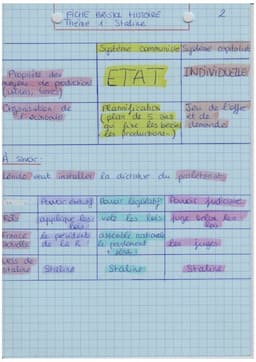 FICHE BRISTOL HISTOIRE
2
Thème 1 : Staline
Système communiste Système capitaliste
Propriété des
moyens de production
(usines, terres)
ETAT
INDIVIDUELLE
Organisation de
l'économie
Plannification
(plan de 5 ans
qui fixe les besoins
les productions)
Jeu de l'offre
et de
demande
À savoir :
Lénine veut installer la dictature du prolétariat
Pouvoir exécutif Pouvoir législatif Pouvoir judiciaire
Rôle
applique les lois
vote les lois
juge selon les lois
France
le président de la R.
assemblé nationale
le parlement
les juges
Staline
Staline
Staline
Staline